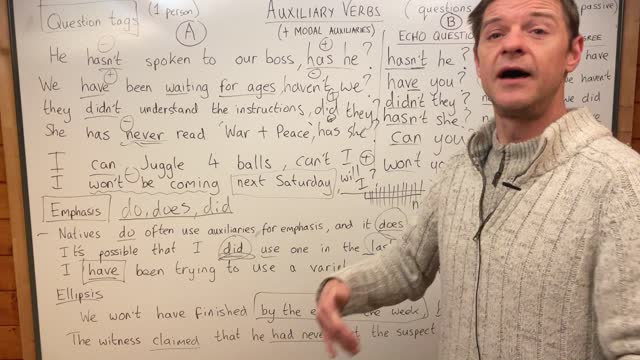 Question tags (1 person) AUXILIARY VERBS (questions passive)
(+ MODAL AUXILIARIES)
A B
He hasn't spoken to our boss, has he?
We have been waiting for ages, haven't we?
they didn't understand the instructions, did they?
She has never read 'War + Peace', has she?
I can Juggle 4 balls, can't I
I won't be coming next Saturday, will I
ECHO QUESTION
hasn't he?
have you?
didn't they?
hasn't she?
can you
won't you
REE
haven't
we did
Emphasis do, does, did
- Natives do often use auxiliaries, for emphasis, and it does
It's possible that I did use one in the
I have been trying to use a
Ellipsis
We won't have finished by the week
The witness claimed that he had the suspect